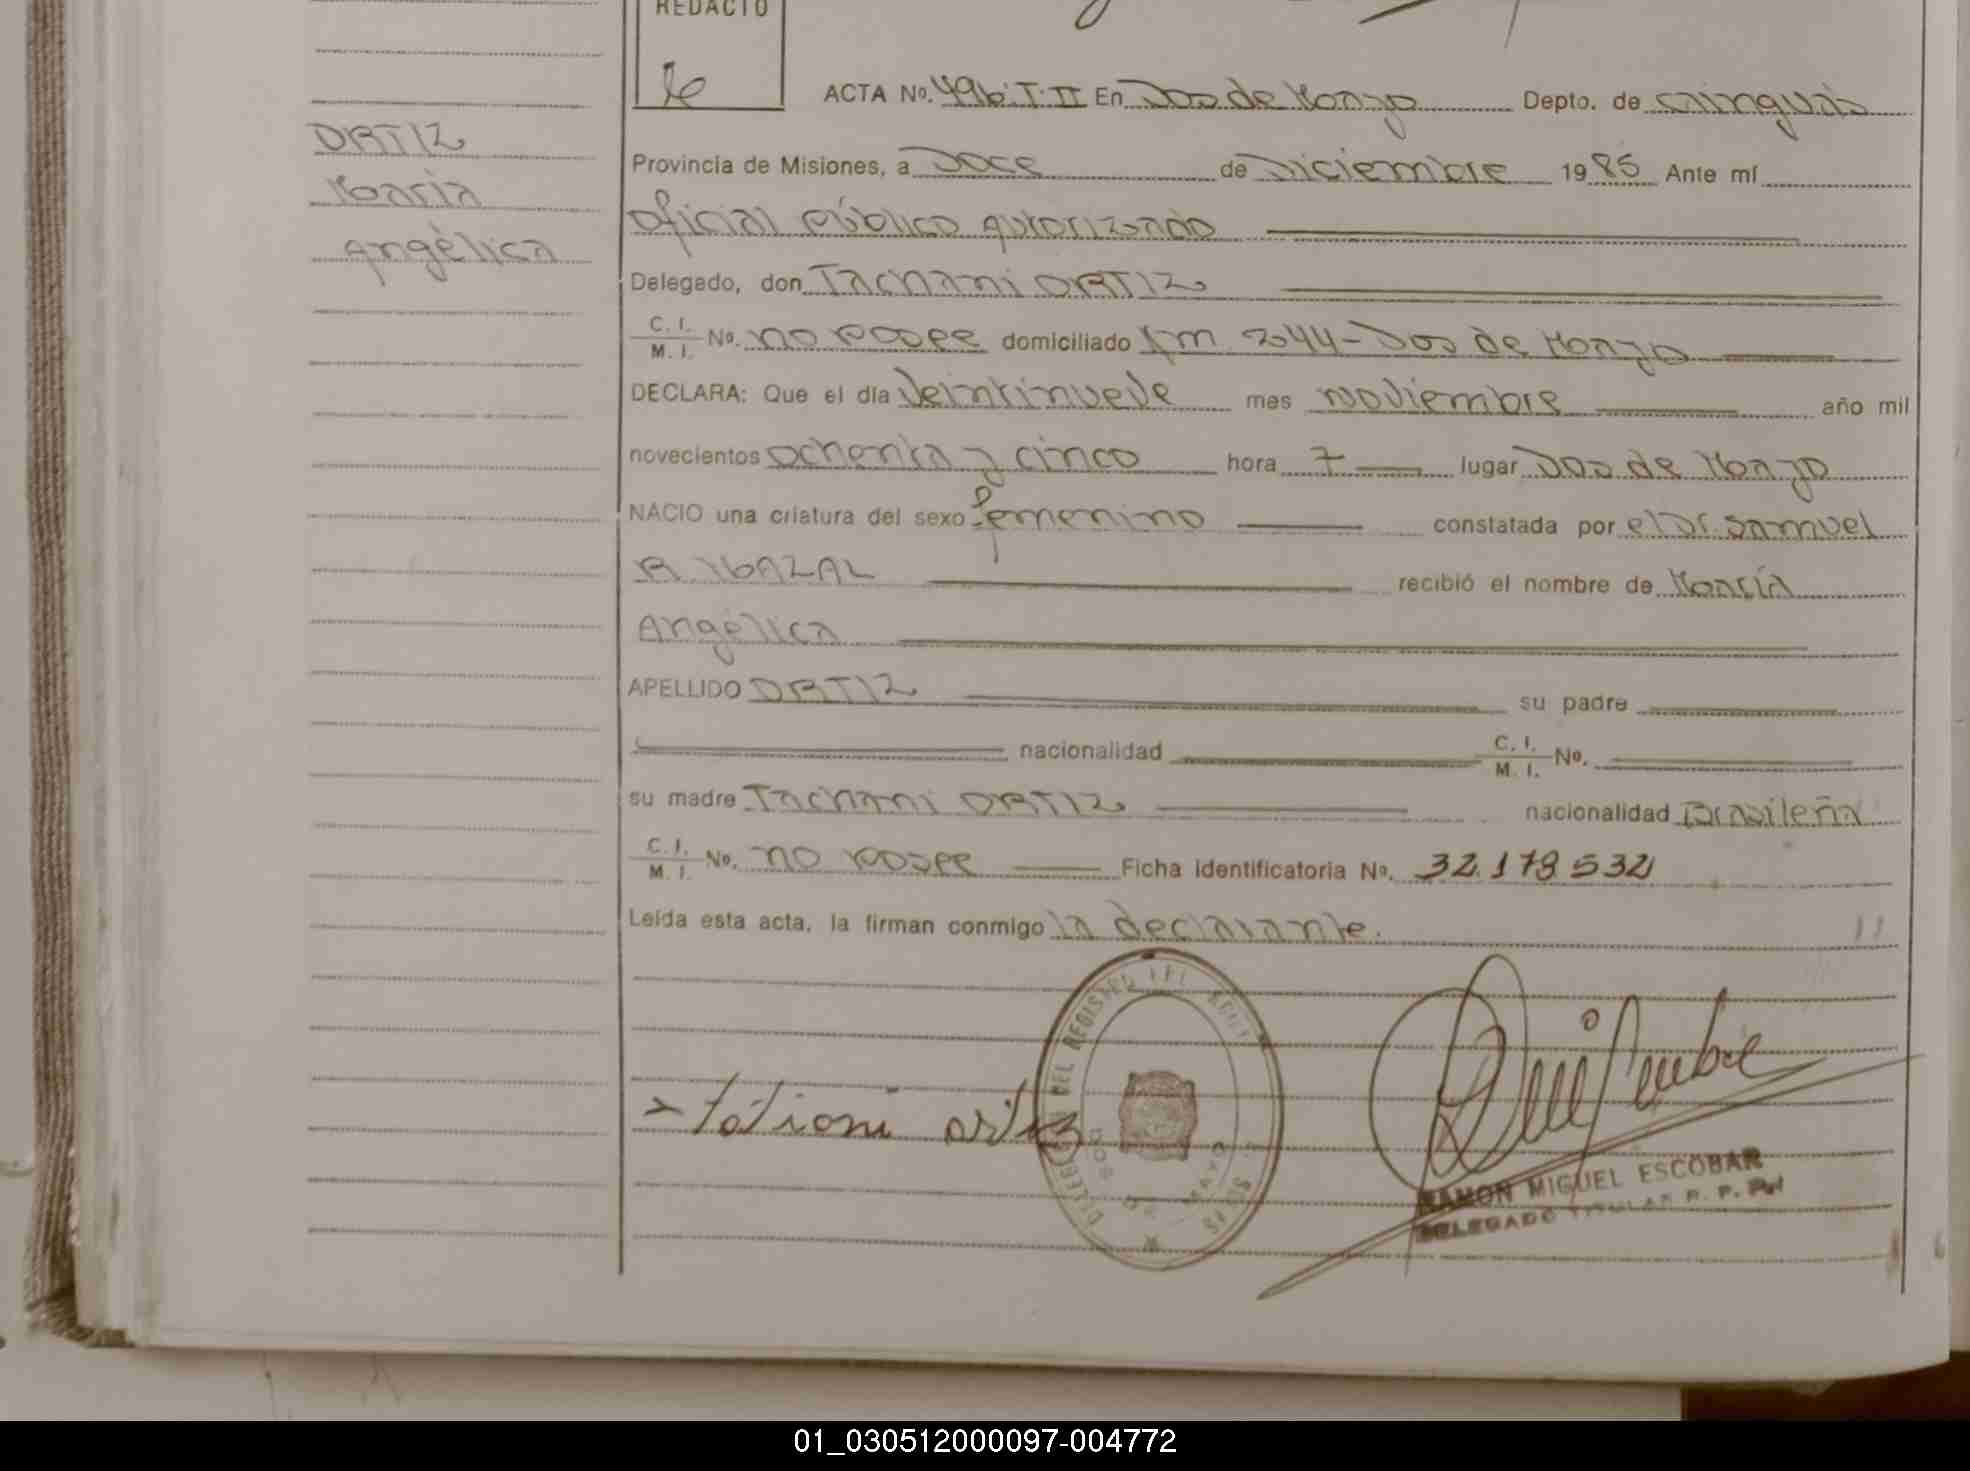 REDACTO
ACTA Nº. 496. T. II En Dos de Mayo Depto. de Cainguás
ORTIZ
María
Angélica
Provincia de Misiones, a Doce de Diciembre 1985 Ante mí
Oficial público autorizado
Delegado, don Tachani ORTIZ
C. I. M. I. Nº. no posee domiciliado Km 244 - Dos de Mayo
DECLARA: Que el día Veintinueve mes noviembre año mil
novecientos ochenta y cinco hora 7 lugar Dos de Mayo
NACIO una criatura del sexo femenino constatada por el Dr. Samuel
recibió el nombre de María
Angélica
APELLIDO ORTIZ su padre
nacionalidad C. I. M. I. Nº.
su madre Tachani ORTIZ nacionalidad Brasileña
C. I. M. I. Nº. no posee Ficha Identificatoria Nº. 32.179.532
Leída esta acta, la firman conmigo la declarante.
DEL REGISTRO DEL
DOS DE MAYO
RAMON MIGUEL ESCOBAR
DELEGADO TITULAR R. P.
01_030512000097-004772